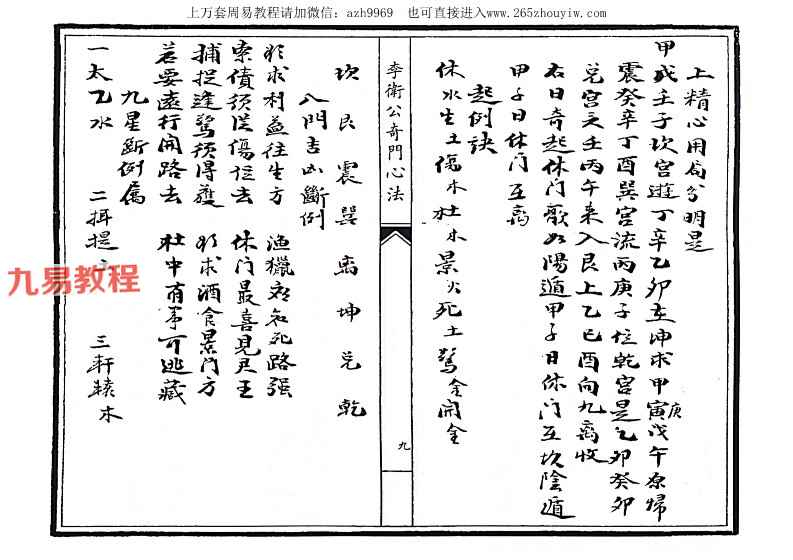 上万套周易教程请加微信：azh9969 也可直接进入www.265zhouyiw.com
上精心用局分明是
甲戌壬子坎宫遊丁辛乙卯在坤求甲寅戊午原帰
庚
震癸辛丁酉巽宫流丙庚子位乾宫是乙卯癸卯
兑宫之壬丙午来入艮上乙巳酉向九离收
右日奇起休门歌如陽遁甲子日休门互坎陰遁
甲子日休门互离
起例訣
休水生土傷木杜木景火死土驚金開金
李衛公奇門心法
九
坎艮震巽离坤兑乾
八門吉凶斷例
欲求利益往生方 漁獵須知死路强
索債须從傷位去 休门最喜見君王
捕捉逢驚须得獲 欲求酒食景门方
若要遠行開路去 杜中有事可逃藏
九星斷例属
一太乙水 二摂提土 三軒轅木
九易教程